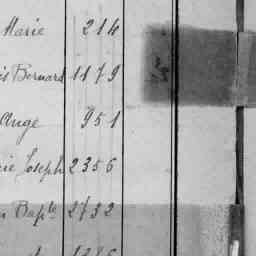 Marie 214
is Bernard 1179
Ange 951
rie Joseph 2356
n Bapte 2732